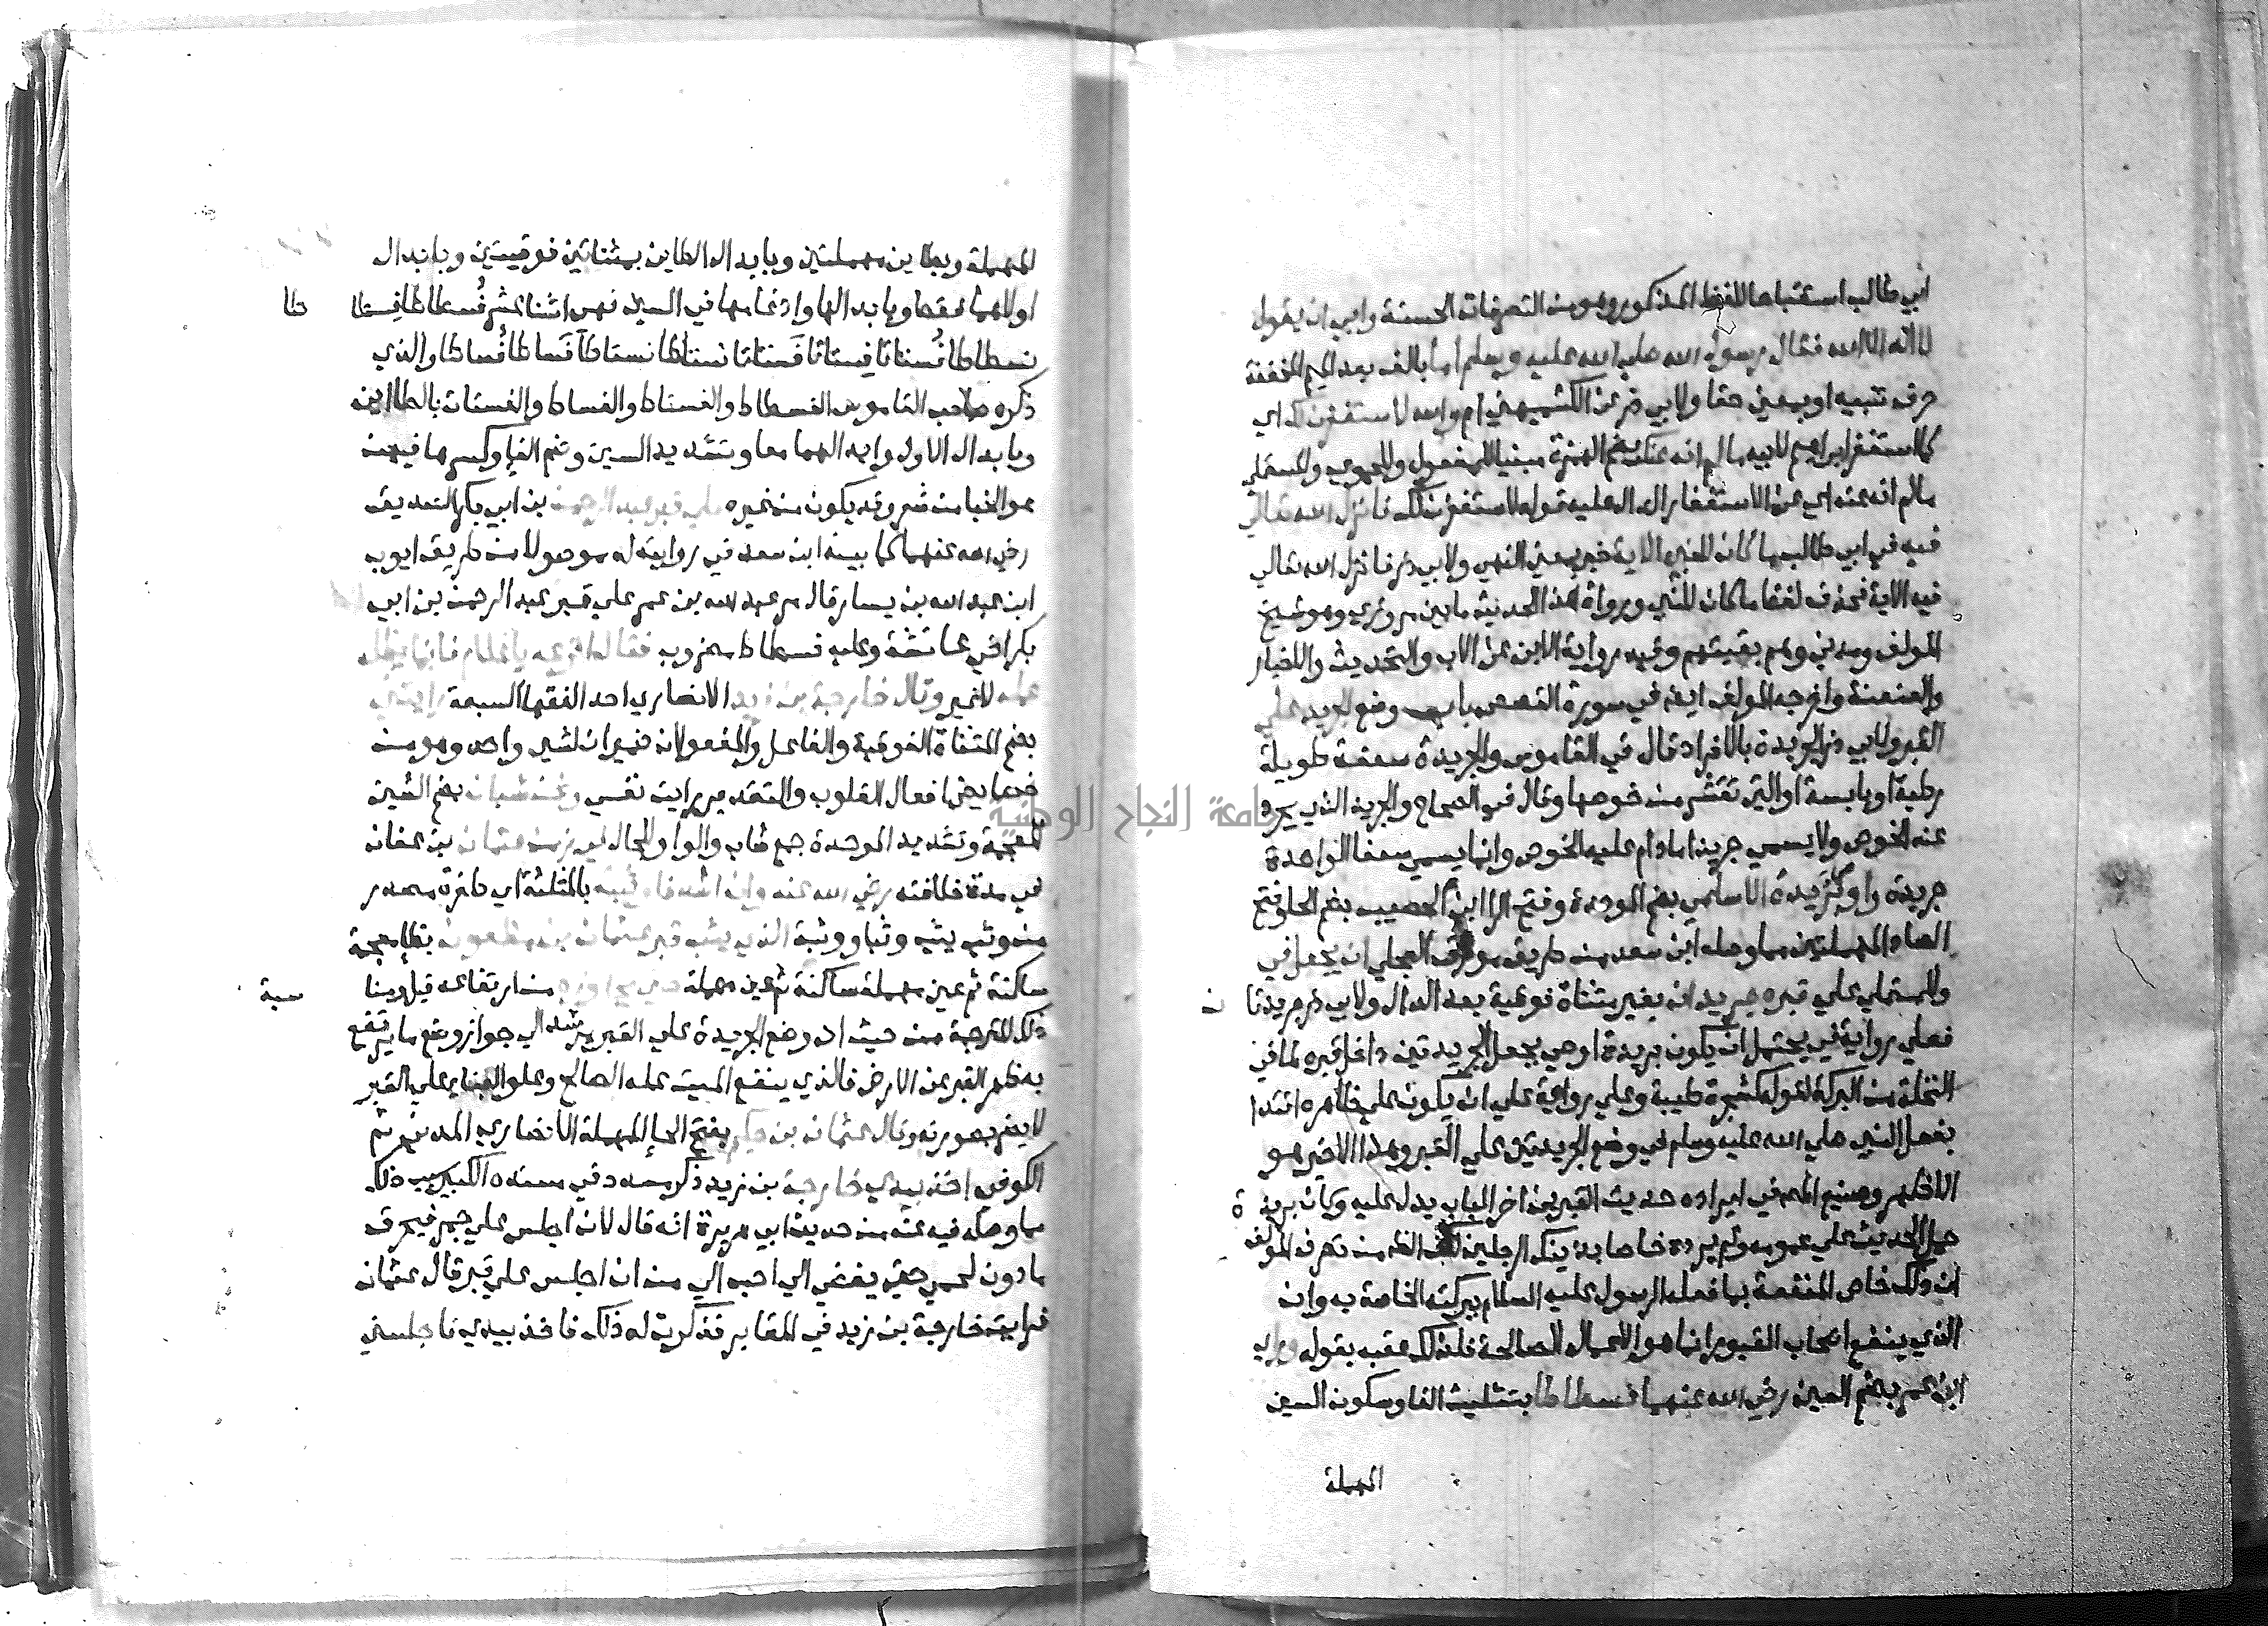 ابي طالب استقباحا للفظ المذكور وهو من التصرفات الحسنة وابي ان يقول
لا اله الا الله فقال رسول الله صلي الله عليه وسلم اما بالف بعد الميم المخففة
حرف تنبيه او بمعني حقا ولابي ذر عن الكشميهني ام والله لاستغفرن لك اي
كما استغفر ابراهيم لابيه ما لم انه عنك بضم الهمزة مبنيا للمفعول وللحموي والمستملي
ما لم انه عنه اي عن الاستغفار الدال عليه قوله لاستغفرن لك فانزل الله تعالي
فيه في ابي طالب ما كان للنبي الاية خبر بمعني النهي ولابي ذر فانزل الله تعالي
فيه الاية فحذف لفظ ما كان للنبي ورواة هذا الحديث ما بين مروزي وهو شيخ
المولف ومدني وهم بقيتهم وفيه رواية الابن عن الاب والتحديث والاخبار
والعنعنة واخرجه المولف ايضا في سورة القصص باب وضع الجريد علي
القبر ولابي ذر الجريدة بالافراد قال في القاموس والجريدة سعفة طويلة
رطبة او يابسة او التي تقشر من خوصها وقال في الصحاح والجريد الذي يجرد
عنه الخوص ولا يسمي جريدا ما دام عليه الخوص وانما يسمي سعفا الواحدة
جريدة واوصي بريدة الاسلمي بضم الموحدة وفتح الرا ابن الحصيب بضم الحا وفتح
الصاد المهملتين مما وصله ابن سعد من طريق مورق العجلي ان يجعل في
وللمستملي علي قبره جريدان بغير مثناة فوقية بعد الدال ولابي ذر جريدتا
ن
فعلي رواية في يحتمل ان يكون بريدة اوصي بجعل الجريدتين داخل قبره لما في
النخلة من البركة لقوله كشجرة طيبة وعلي رواية علي ان يكون علي ظاهره اقتدا
بفعل النبي صلي الله عليه وسلم في وضع الجريدتين علي القبر وهذا الاخير هو
الاظهر وصنيع المص في ايراده حديث القبرين اخر الباب يدل عليه وكان بريد
ة
حمل الحديث علي عمومه ولم يرده خاصا بذينك الرجلين لكن الظاهر من تصرف المولف
ان ذلك خاص المنفعة بما فعله الرسول عليه السلام ببركته الخاصة به وان
الذي ينفع اصحاب القبور انما هو الاعمال الصالحة فلذلك عقبه بقوله وراي
ابن عمر بضم العين رضي الله عنهما فسطاطا بتثليث الفا وسكون السين
المهملة
المهملة وبطاين مهملتين وبابدال الطاين بمثناتين فوقيتين وبابدال
اولاهما فقط وبابدالها وادغامها في السين فهي اثنا عشر فسطاطا فسطا
طا
فسطاطا فستاتا فستاتا فستاتا فستاطا فستاطا فساطا فساطا والذي
ذكره صاحب القاموس الفسطاط والفستاط والفساط والفستات بالطا ايض
وبابدال الاولي وابدالهما معا وبتشديد السين وضم الفا وكسرها فيهن
هو الخبا من شعر وقد يكون من غيره علي قبر عبد الرحمن بن ابي بكر الصديق
رضي الله عنهما كما بينه ابن سعد في روايته له موصولا من طريق ايوب
ابن عبد الله بن يسار قال مر عبد الله بن عمر علي قبر عبد الرحمن بن ابي
بكر اخي عائشة وعليه فسطاط مضروب فقال انزعه يا غلام فانما يظله
عمله لا غير وقال خارجة بن زيد الانصاري احد الفقها السبعة رايتني
بضم المثناة الفوقية والفاعل والمفعول ضميران لشي واحد وهو من
خصايص افعال القلوب والتقدير رايت نفسي ونحن شبان بضم الشين
المعجمة وتشديد الموحدة جمع شاب والواو للحال في زمن عثمان بن عفان
في مدة خلافته رضي الله عنه وان اشدنا وثبة بالمثلثة اي طفرة مصدر
من وثب يثب وثبا ووثبة الذي يثب قبر عثمان بن مظعون بظا معجمة
ساكنة ثم عين مهملة ساكنة ثم عين مهملة حتي يجاوزه من ارتفاعه قيل ومنا
سبة
ذلك للترجمة من حيث ان وضع الجريدة علي القبر يرشد الي جواز وضع ما يرتفع
به ظهر القبر عن الارض فالذي ينفع الميت عمله الصالح وعلو البنا علي القبر
لا يضر بصورته وقال عثمان بن حكيم بفتح الحا المهملة الانصاري المدني ثم
الكوفي اخذ بيدي خارجة بن زيد ذكر مسدد في مسنده الكبير سبب ذلك
مما وصله فيه عنه من حديث ابي هريرة انه قال لان اجلس علي جمر فيحرق
ما دون لحمي حتي يفضي الي احب الي من ان اجلس علي قبر قال عثمان
فرايت خارجة بن زيد في المقابر فذكرت له ذلك فاخذ بيدي فاجلسني
جامعة النجاح الوطنية